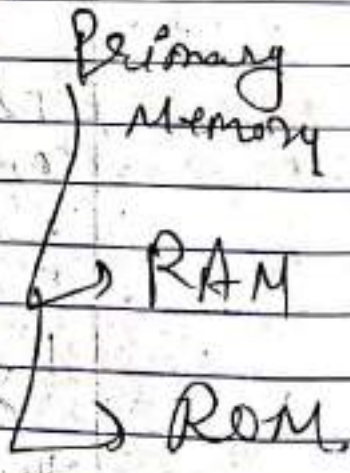 Primary
Memory
RAM
ROM